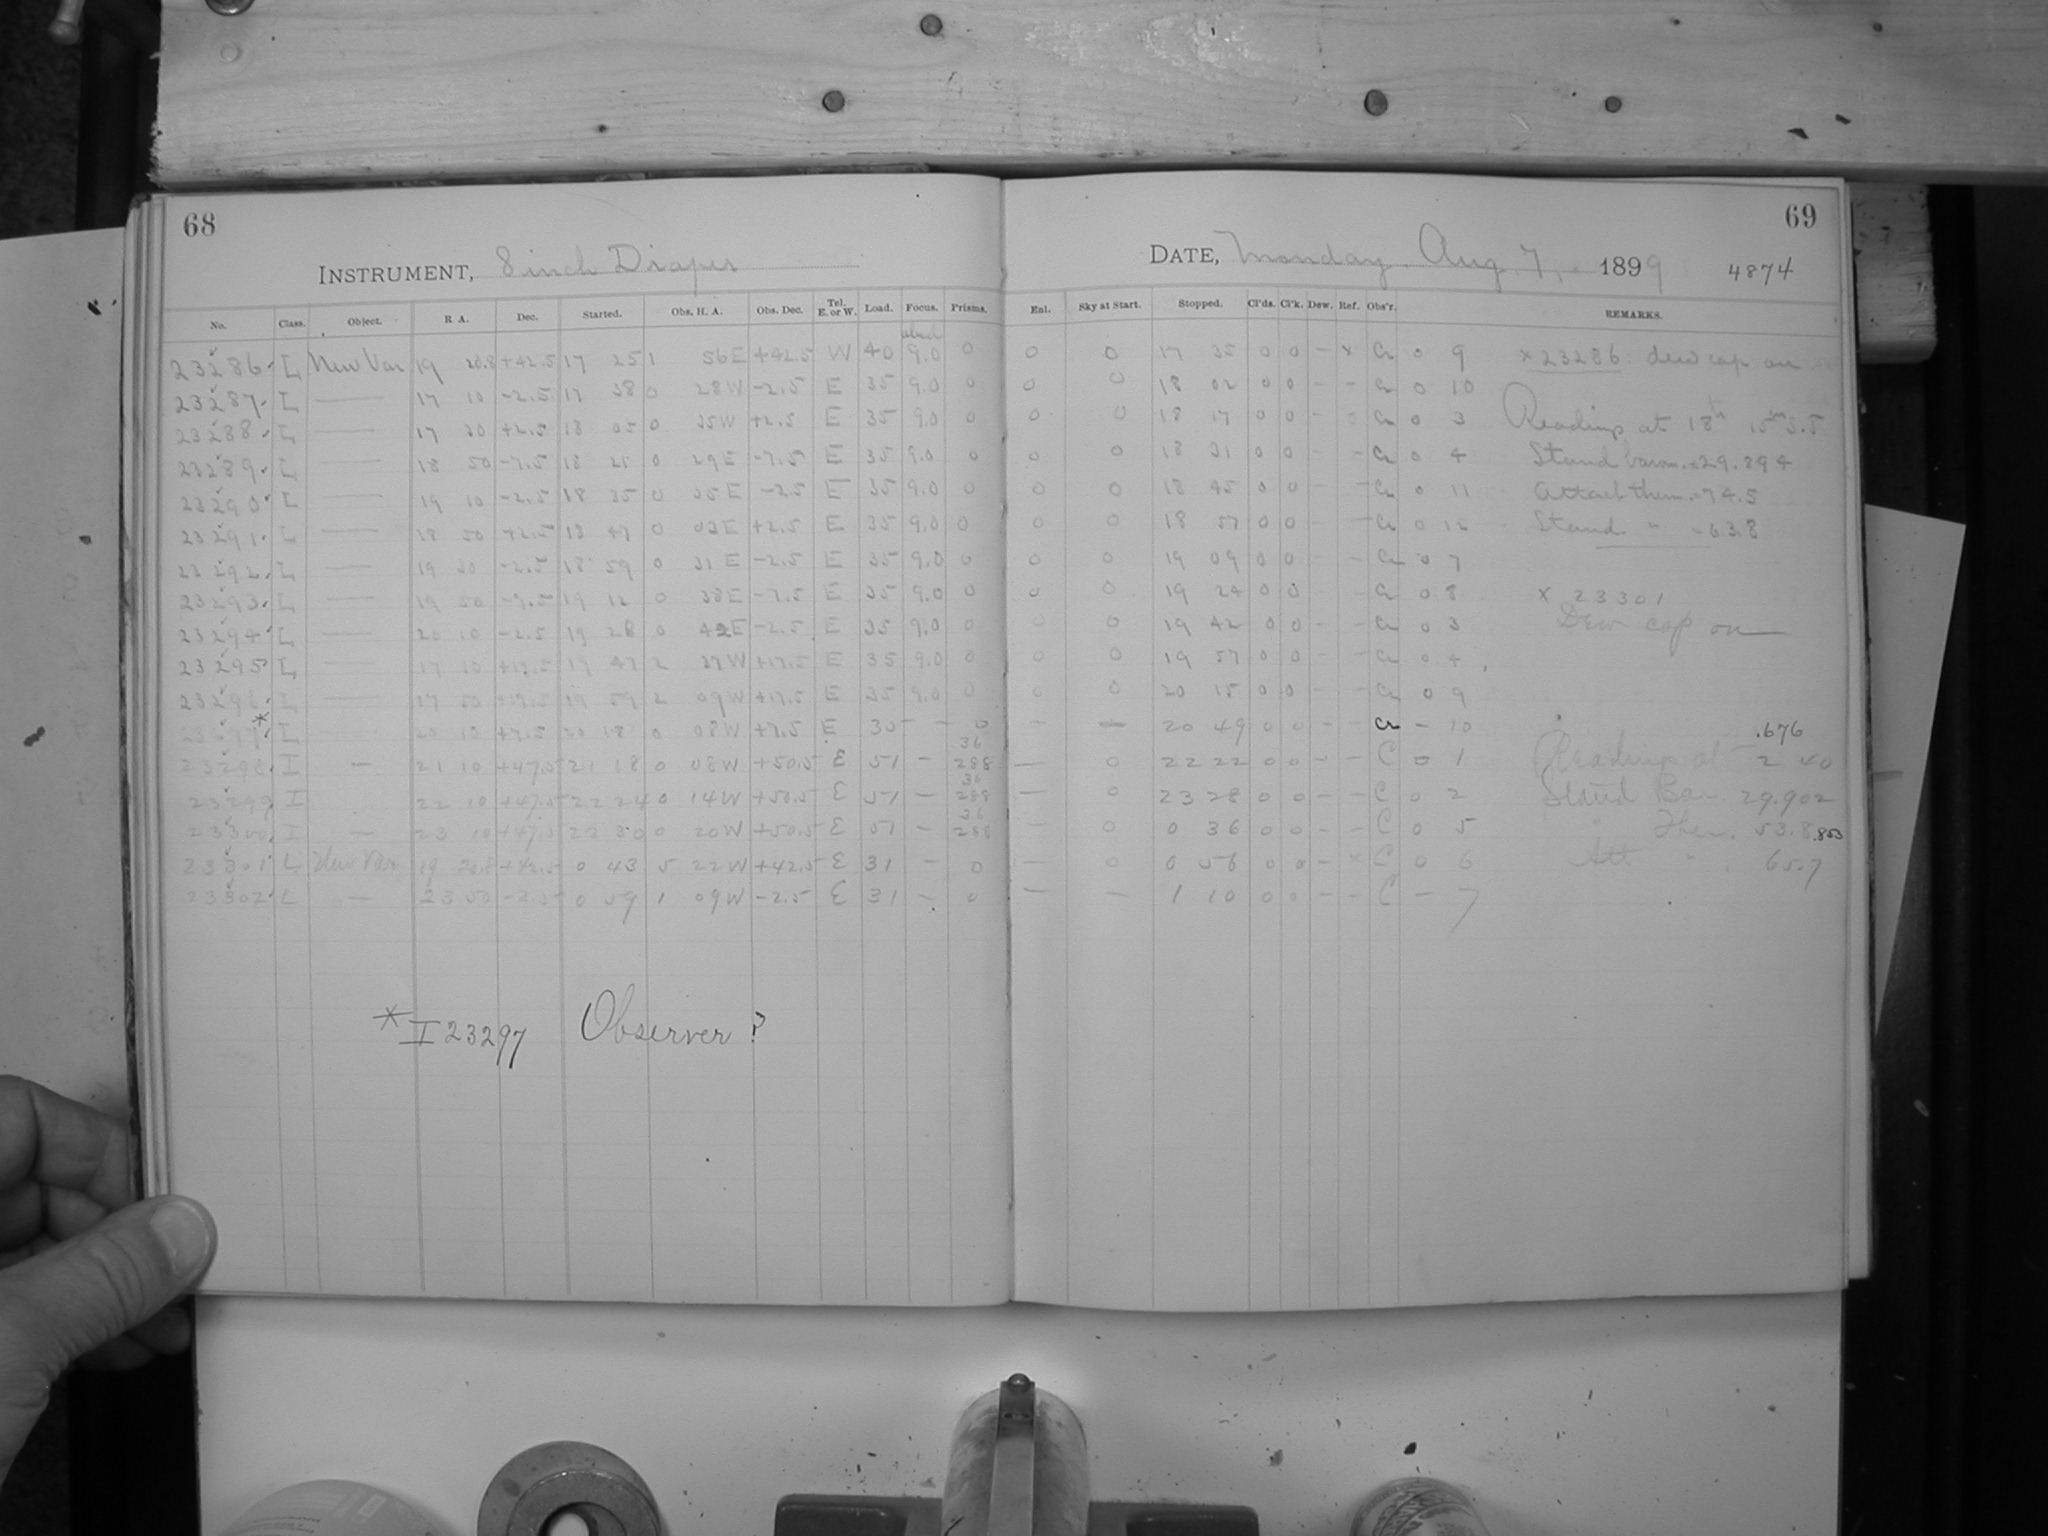 68
INSTRUMENT, 8 inch Draper
No. Class. Object. R A. Dec. Started. Obs. H. A. Obs. Dec. Tel. E. or W. Load. Focus. Prisms.
23286 L New Var 19 20.8 +42.5 17 25 1 56E +42.5 W 40 9.0 0
23287 L — 17 10 -2.5 17 38 0 28W -2.5 E 35 9.0 0
23288 L — 17 30 +2.5 18 05 0 35W +2.5 E 35 9.0 0
23289 L — 18 50 -7.5 18 21 0 29E -7.5 E 35 9.0 0
23290 L — 19 10 -2.5 18 35 0 35E -2.5 E 35 9.0 0
23291 L — 18 50 +2.5 18 47 0 03E +2.5 E 35 9.0 0
23292 L — 19 30 -2.5 18 59 0 31E -2.5 E 35 9.0 0
23293 L — 19 50 -7.5 19 12 0 38E -7.5 E 35 9.0 0
23294 L — 20 10 -2.5 19 28 0 42E -2.5 E 35 9.0 0
23295 L — 17 10 +17.5 19 47 2 37W +17.5 E 35 9.0 0
23296 L — 17 50 +17.5 19 59 2 09W +17.5 E 35 9.0 0
23297 * L 20 10 +7.5 20 18 0 08W +7.5 E 30 - - 0
23298 I — 21 10 +47.5 21 18 0 08W +50.5 E 51 - 36 288
23299 I 22 10 +47.5 22 24 0 14W +50.5 E 51 - 36 288
23300 I — 23 10 +47.5 23 30 0 20W +50.5 E 51 - 36 288
23301 L New Var 19 20.8 +42.5 0 43 5 22W +42.5 E 31 - 0
23302 L — 23 50 -2.5 0 59 1 09W -2.5 E 31 - 0
* I 23297 Observer?
69
DATE, Monday, Aug. 7, 1899 4874
Enl. Sky at Start. Stopped. Cl'ds. Cl'k. Dew. Ref. Obs'r. REMARKS.
0 0 17 35 0 0 - x Cr 0 9 x 23286: dew cap on
0 0 18 02 0 0 - - Cr 0 10
0 0 18 17 0 0 - Cr 0 3 Readings at 18h 15m 3.5
0 0 18 31 0 0 - - Cr 0 4 Stand barom. = 29.894
0 0 18 45 0 0 - - Cr 0 11 Attach therm. = 74.5
0 0 18 57 0 0 - - Cr 0 12 Stand " = 63.8
0 0 19 09 0 0 - - Cr 0 7
0 0 19 24 0 0 - - Cr 0 8 x 23301
0 0 19 42 0 0 - - Cr 0 3 Dew cap on
0 0 19 57 0 0 - - Cr 0 4
0 0 20 15 0 0 - - Cr 0 9
- - 20 49 0 0 - - Cr - 10 .676
— 0 22 22 0 0 - - C 0 1 Readings at 2 40
— 0 23 28 0 0 - - C 0 2 Stand Bar. 29.902
— 0 0 36 0 0 - - C 0 5 " Ther. 53.8 .853
— 0 0 56 0 0 - x C 0 6 Att " 65.7
— — 1 10 0 0 - - C - 7